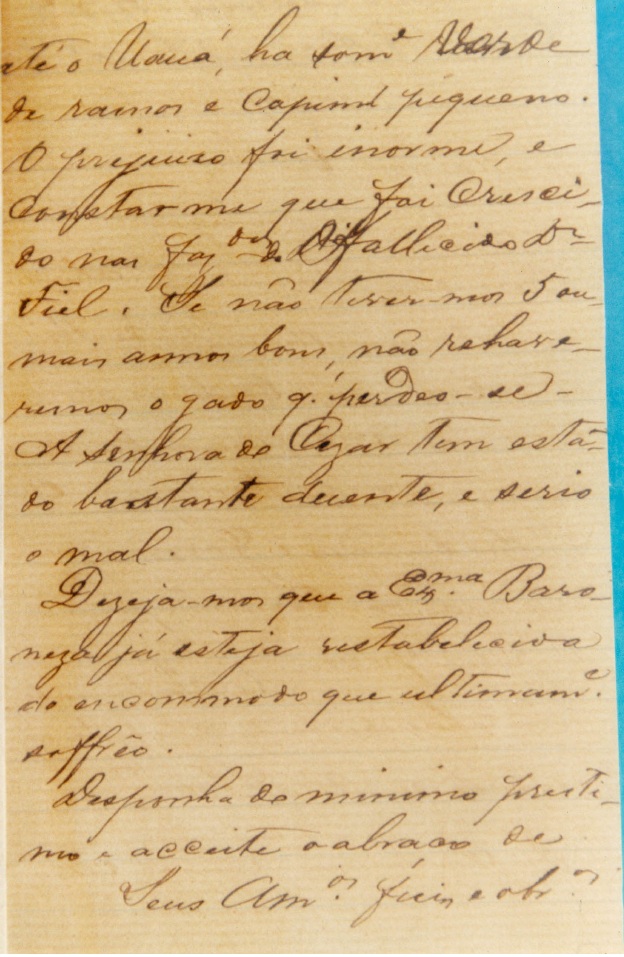 até o Uauá, ha som.e verde
de ramos e Capim pequeno.
O prejuizo foi inorme, e
constar-me que foi Cresci-
do nas faz.das do fallecido Dr
Fiel. Se não tiver-mos 5 ou
mais annos bons, não rehave-
remos o gado q. perdeo-se-
A senhora do Cezar tem está-
do bastante duente, e serio
o mal.
Dezeja-mos que a Ex.ma Baro-
neza já esteja restabelecida
do encommodo que ultimam.e
soffrêo.
Desponha do minimo presti-
mo e acceite o abraço de
Seus Am.os fieis e obr.os